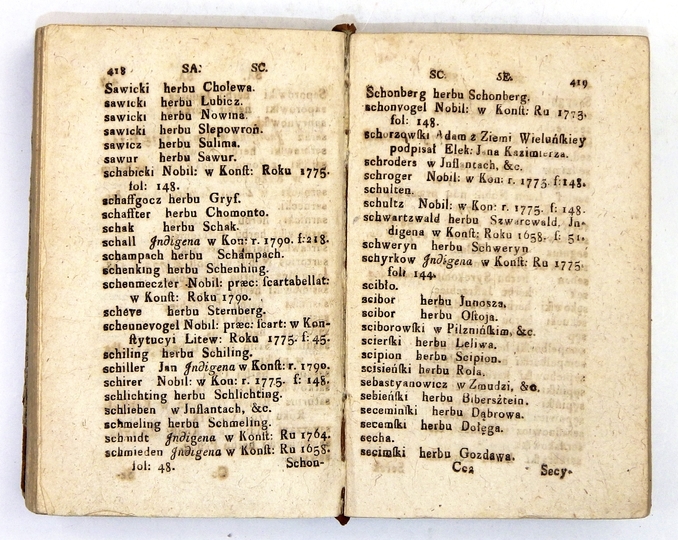 418 SA: SC.
Sawicki herbu Cholewa.
sawicki herbu Lubicz.
sawicki herbu Nowina.
sawicki herbu Slepowroń.
sawicz herbu Sulima.
sawur herbu Sawur.
schabicki Nobil: w Konſt: Roku 1775.
fol: 148.
schaffgocz herbu Gryf.
schaffter herbu Chomonto.
schak herbu Schak.
schall Jndigena w Kon: r. 1790. f:218.
schampach herbu Schampach.
schenking herbu Schenhing.
schenmeczler Nobil: præc: ſcartabellat:
w Konſt: Roku 1790.
scheve herbu Sternberg.
scheunevogel Nobil: præc: ſcart: w Kon-
ſtytucyi Litew: Roku 1775. f: 45.
schiling herbu Schiling.
schiller Jan Jndigena w Konſt: r. 1790.
schirer Nobil: w Kon: r. 1775. f: 148.
schlichting herbu Schlichting.
schlieben w Jnflantach, &c.
schmeling herbu Schmeling.
schmidt Jndigena w Konſt: Ru 1764.
schmieden Jndigena w Konſt: Ru 1658.
fol: 48. Schon-
SC. SE. 419
Schonberg herbu Schonberg.
schonvogel Nobil: w Konſt: Ru 1773.
fol: 148.
schorząwſki Adam z Ziemi Wieluńſkiey
podpisał Elek: Jana Kazimierza.
schroders w Jnflantach, &c.
schroger Nobil: w Kon: r. 1775. f:148.
schulten.
schultz Nobil: w Kon: r. 1775. f: 148.
schwartzwald herbu Szwarcwald. Jn-
digena w Konſt: Roku 1658. f: 51.
schweryn herbu Schweryn
schyrkow Jndigena w Konſt: Ru 1775.
fol: 144.
scibło.
scibor herbu Junosza.
scibor herbu Oſtoja.
sciborowſki w Pilznińſkim, &c.
scierſki herbu Leliwa.
scipion herbu Scipion.
scisieńſki herbu Rola.
sebastyanowicz w Zmudzi, &c.
sebieńſki herbu Bibersztein.
seceminſki herbu Dąbrowa.
secemſki herbu Dołęga.
secha.
secimſki herbu Gozdawa.
Cc2 Secy-